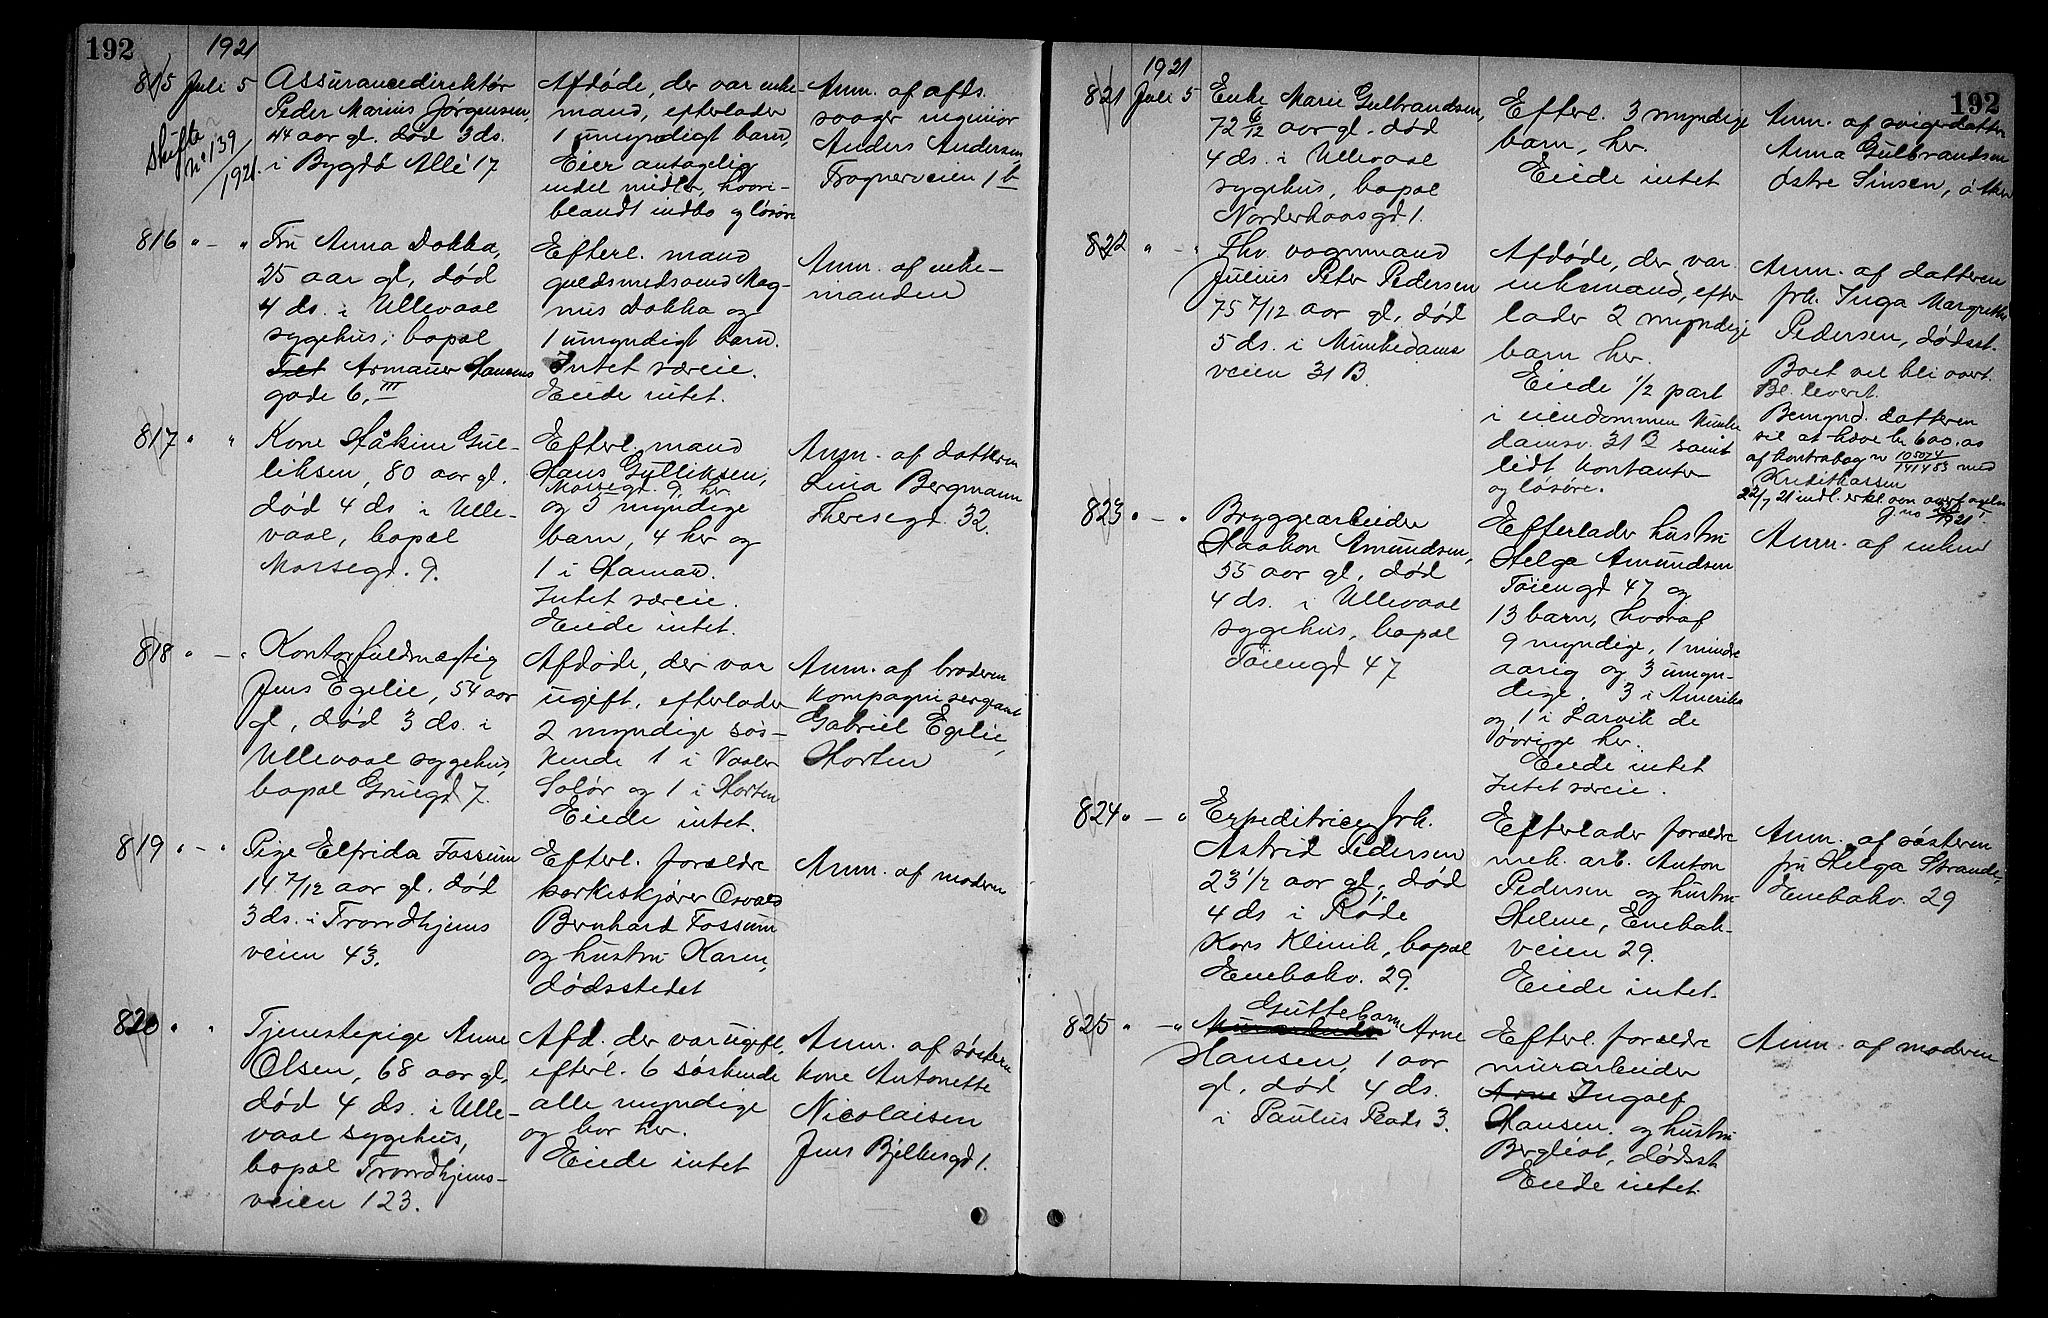 192
1921
815 Juli 5
Skifte
No 139
/1921.
Assurancedirektør
Peder Marius Jørgensen,
44 aar gl. død 3 ds.
i Bygdø Allé 17
Afdøde, der var enke-
mand, efterlader
1 umyndigt barn,
Eier antagelig
endel midler, hvori-
blandt indbo og løsøre
Anm. af afds.
svoger ingeniør
Anders Andersen,
Frognerveien 1 b
816 " - "
Fru Anna Dokka,
25 aar gl, død
4 ds. i Ullevaal
sygehus, bopæl
Armauer Hansens
gade 6, III
Efterl. mand
guldsmedsvend Mag-
nus Dokka og
1 umyndigt barn.
Intet særeie.
Eiede intet.
Anm. af enke-
manden
817 " "
Kone Håkine Gul-
liksen, 80 aar gl.
død 4 ds. i Ulle-
vaal, bopæl
Mossegd. 9.
Efterl. mand
Hans Gulliksen,
Mossegd. 9, her
og 5 myndige
barn, 4 her og
1 i Hamar.
Intet særeie.
Eiede intet.
Anm. af datteren
Lina Bergmann
Theresegd. 32.
818 " - "
Kontorfuldmægtig
Jens Egelie, 54 aar
gl, død 3 ds. i
Ullevaal sygehus,
bopæl Griegd 7.
Afdøde, der var
ugift, efterlader
2 myndige søs-
kende 1 i Vaaler
Solør og 1 i Horten
Eiede intet.
Anm. af broderen
kompagnisergeant
Gabriel Egelie,
Horten
819 " - "
Pige Elfrida Fossum
14 7/12 aar gl. død
3 ds. i Trondhjems
veien 43.
Efterl. forældre
Osvald
Bernhard Fossum
og hustru Karen,
dødsstedet
Anm. af moderen
820 " "
Tjenestepige Anne
Olsen, 68 aar gl,
død 4 ds. i Ulle-
vaal sygehus,
bopæl Trondhjems-
veien 123.
Afd. der var ugift,
efterl. 6 søskende
alle myndige
og bor her.
Eiede intet
Anm. af søsteren
kone Antonette
Nicolaisen
Jens Bjelkesgd 1.
192
1921
821 Juli 5
Enke Marie Gulbrandsen,
72 6/12 aar gl. død
4 ds. i Ullevaal
sygehus, bopæl
Norderhovsgd 1.
Efterl. 3 myndige
barn, her.
Eiede intet
Anm. af svigerdatter
Anna Gulbrandsen
Østre Sinsen, ø Aker
822 " - "
Fhv. vognmand
Julius Peter Pedersen
75 7/12 aar gl, død
5 ds. i Munkedams
veien 31 B.
Afdøde, der var
enkemand, efter
lader 2 myndige
barn her.
Eiede 1/2 part
i eiendommen Munke
damsv. 31 B samt
lidt kontanter
og løsøre.
Anm. af datteren
frk. Inga Margrethe
Pedersen, dødsst.
Boet vil bli overt.
Bl. levert.
Bemynd. datteren
til at hæve kr 600.00
af kontrabog nr 105074/141453 med
Kreditkassen
22/7 21 indl. erkl. om overtagelse
J. no
823 " - "
Bryggearbeider
Haakon Amundsen,
55 aar gl, død
4 ds. i Ullevaal
sygehus, bopæl
Tøiengd 47
Efterlader hustru
Helga Amundsen
Tøiengd 47 og
13 barn, hvoraf
9 myndige, 1 mindre
aarig og 3 umyn-
dige. 3 i Amerika
og 1 i Larvik de
øvrige her.
Eiede intet
Intet særeie.
Anm. af enken
824 " - "
Expeditrice frk.
Astrid Pedersen
23 1/2 aar gl, død
4 ds i Røde
Kors Klinik, bopæl
Enebakv. 29.
Efterlader forældre
mek. arb. Anton
Pedersen og hustru
Helene, Enebak-
veien 29.
Eiede intet.
Anm. af søsteren
fru Helga Strande,
Enebakv. 29
825 " - "
Guttebarn
Murarbeider Arne
Hansen, 1 aar
gl, død 4 ds.
i Paulus Plads 3.
Efterl. forældre
murarbeider
Arne Ingolf
Hansen og hustru
Bergliot, dødsst
Eiede intet.
Anm. af moderen